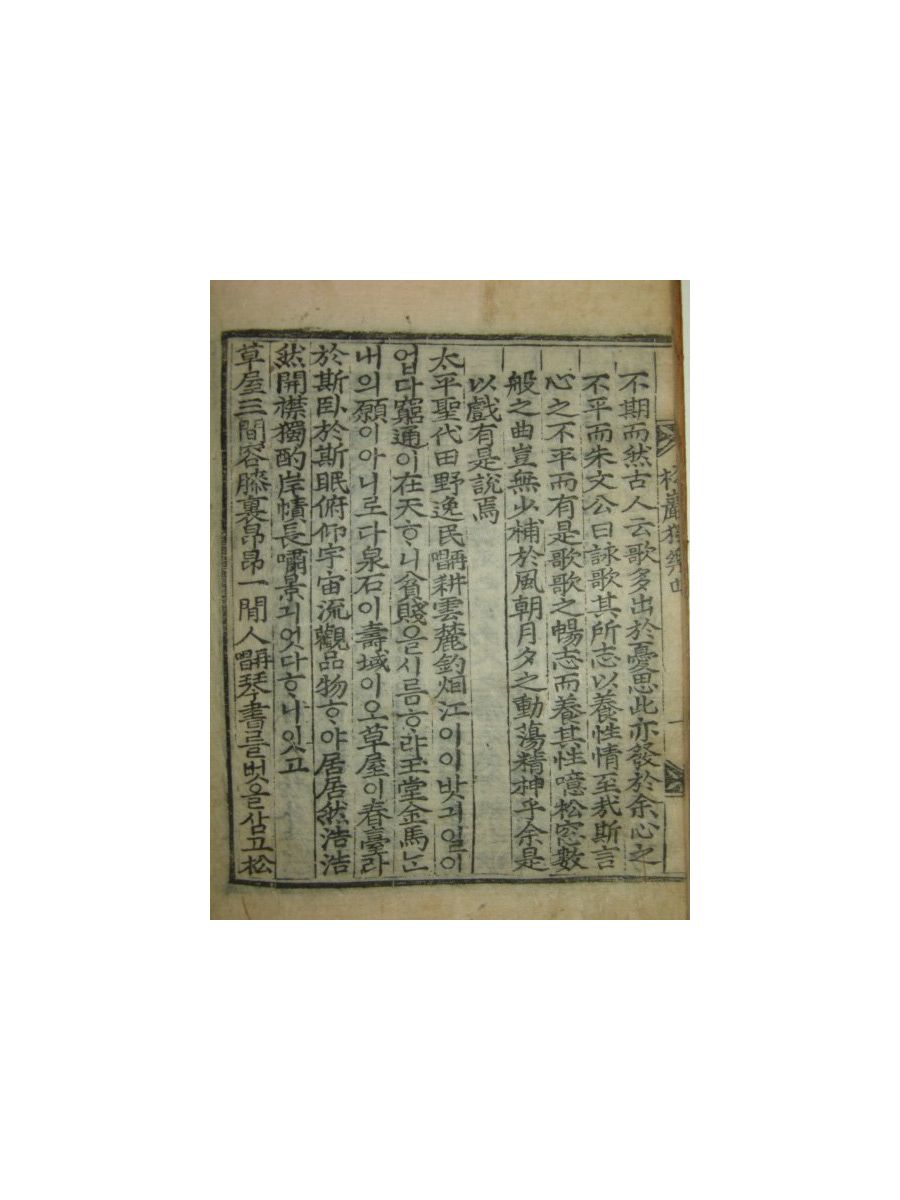 松巖獨樂曲 一
不期而然古人云歌多出於憂思此亦發於余心之
不平而朱文公曰詠歌其所志以養性情至哉斯言
心之不平而有是歌歌之暢志而養其性噫松窓數
般之曲豈無少補於風朝月夕之動蕩精神乎余是
以戲有是說焉
太平聖代田野逸民再唱耕雲麓釣烟江이이밧긔일이
업다窮通이在天ᄒᆞ니貧賤을시름ᄒᆞ랴玉堂金馬ᄂᆞᆫ
내의願이아니로다泉石이壽域이오草屋이春臺라
於斯臥於斯眠俯仰宇宙流觀品物ᄒᆞ야居居然浩浩
然開襟獨酌岸幘長嘯景긔엇다ᄒᆞ니잇고
草屋三間容膝裏昻昻一閒人再唱琴書를벗을삼고松